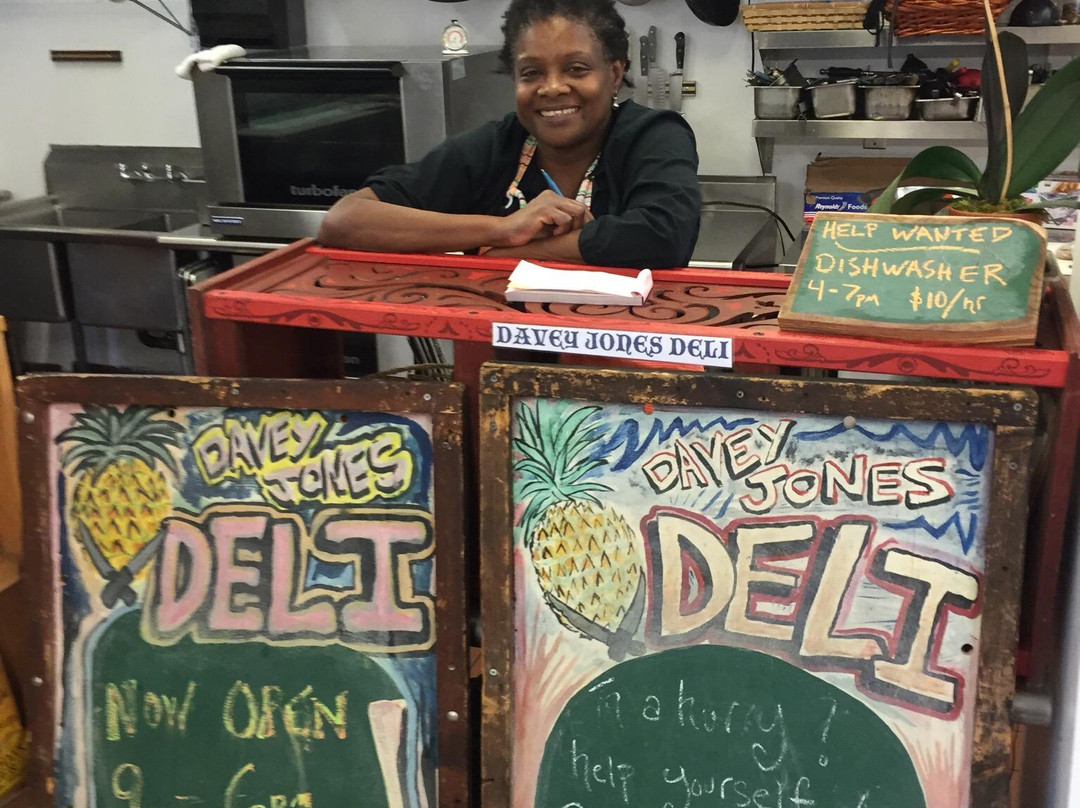 turbofan
Reynolds Foods
HELP WANTED
DISHWASHER
4-7pm $10/hr
DAVEY JONES DELI
DAVEY
JONES
DELI
NOW OPEN
9 - 6pm
DAVEY
JONES
DELI
In a hurry?
help yourself